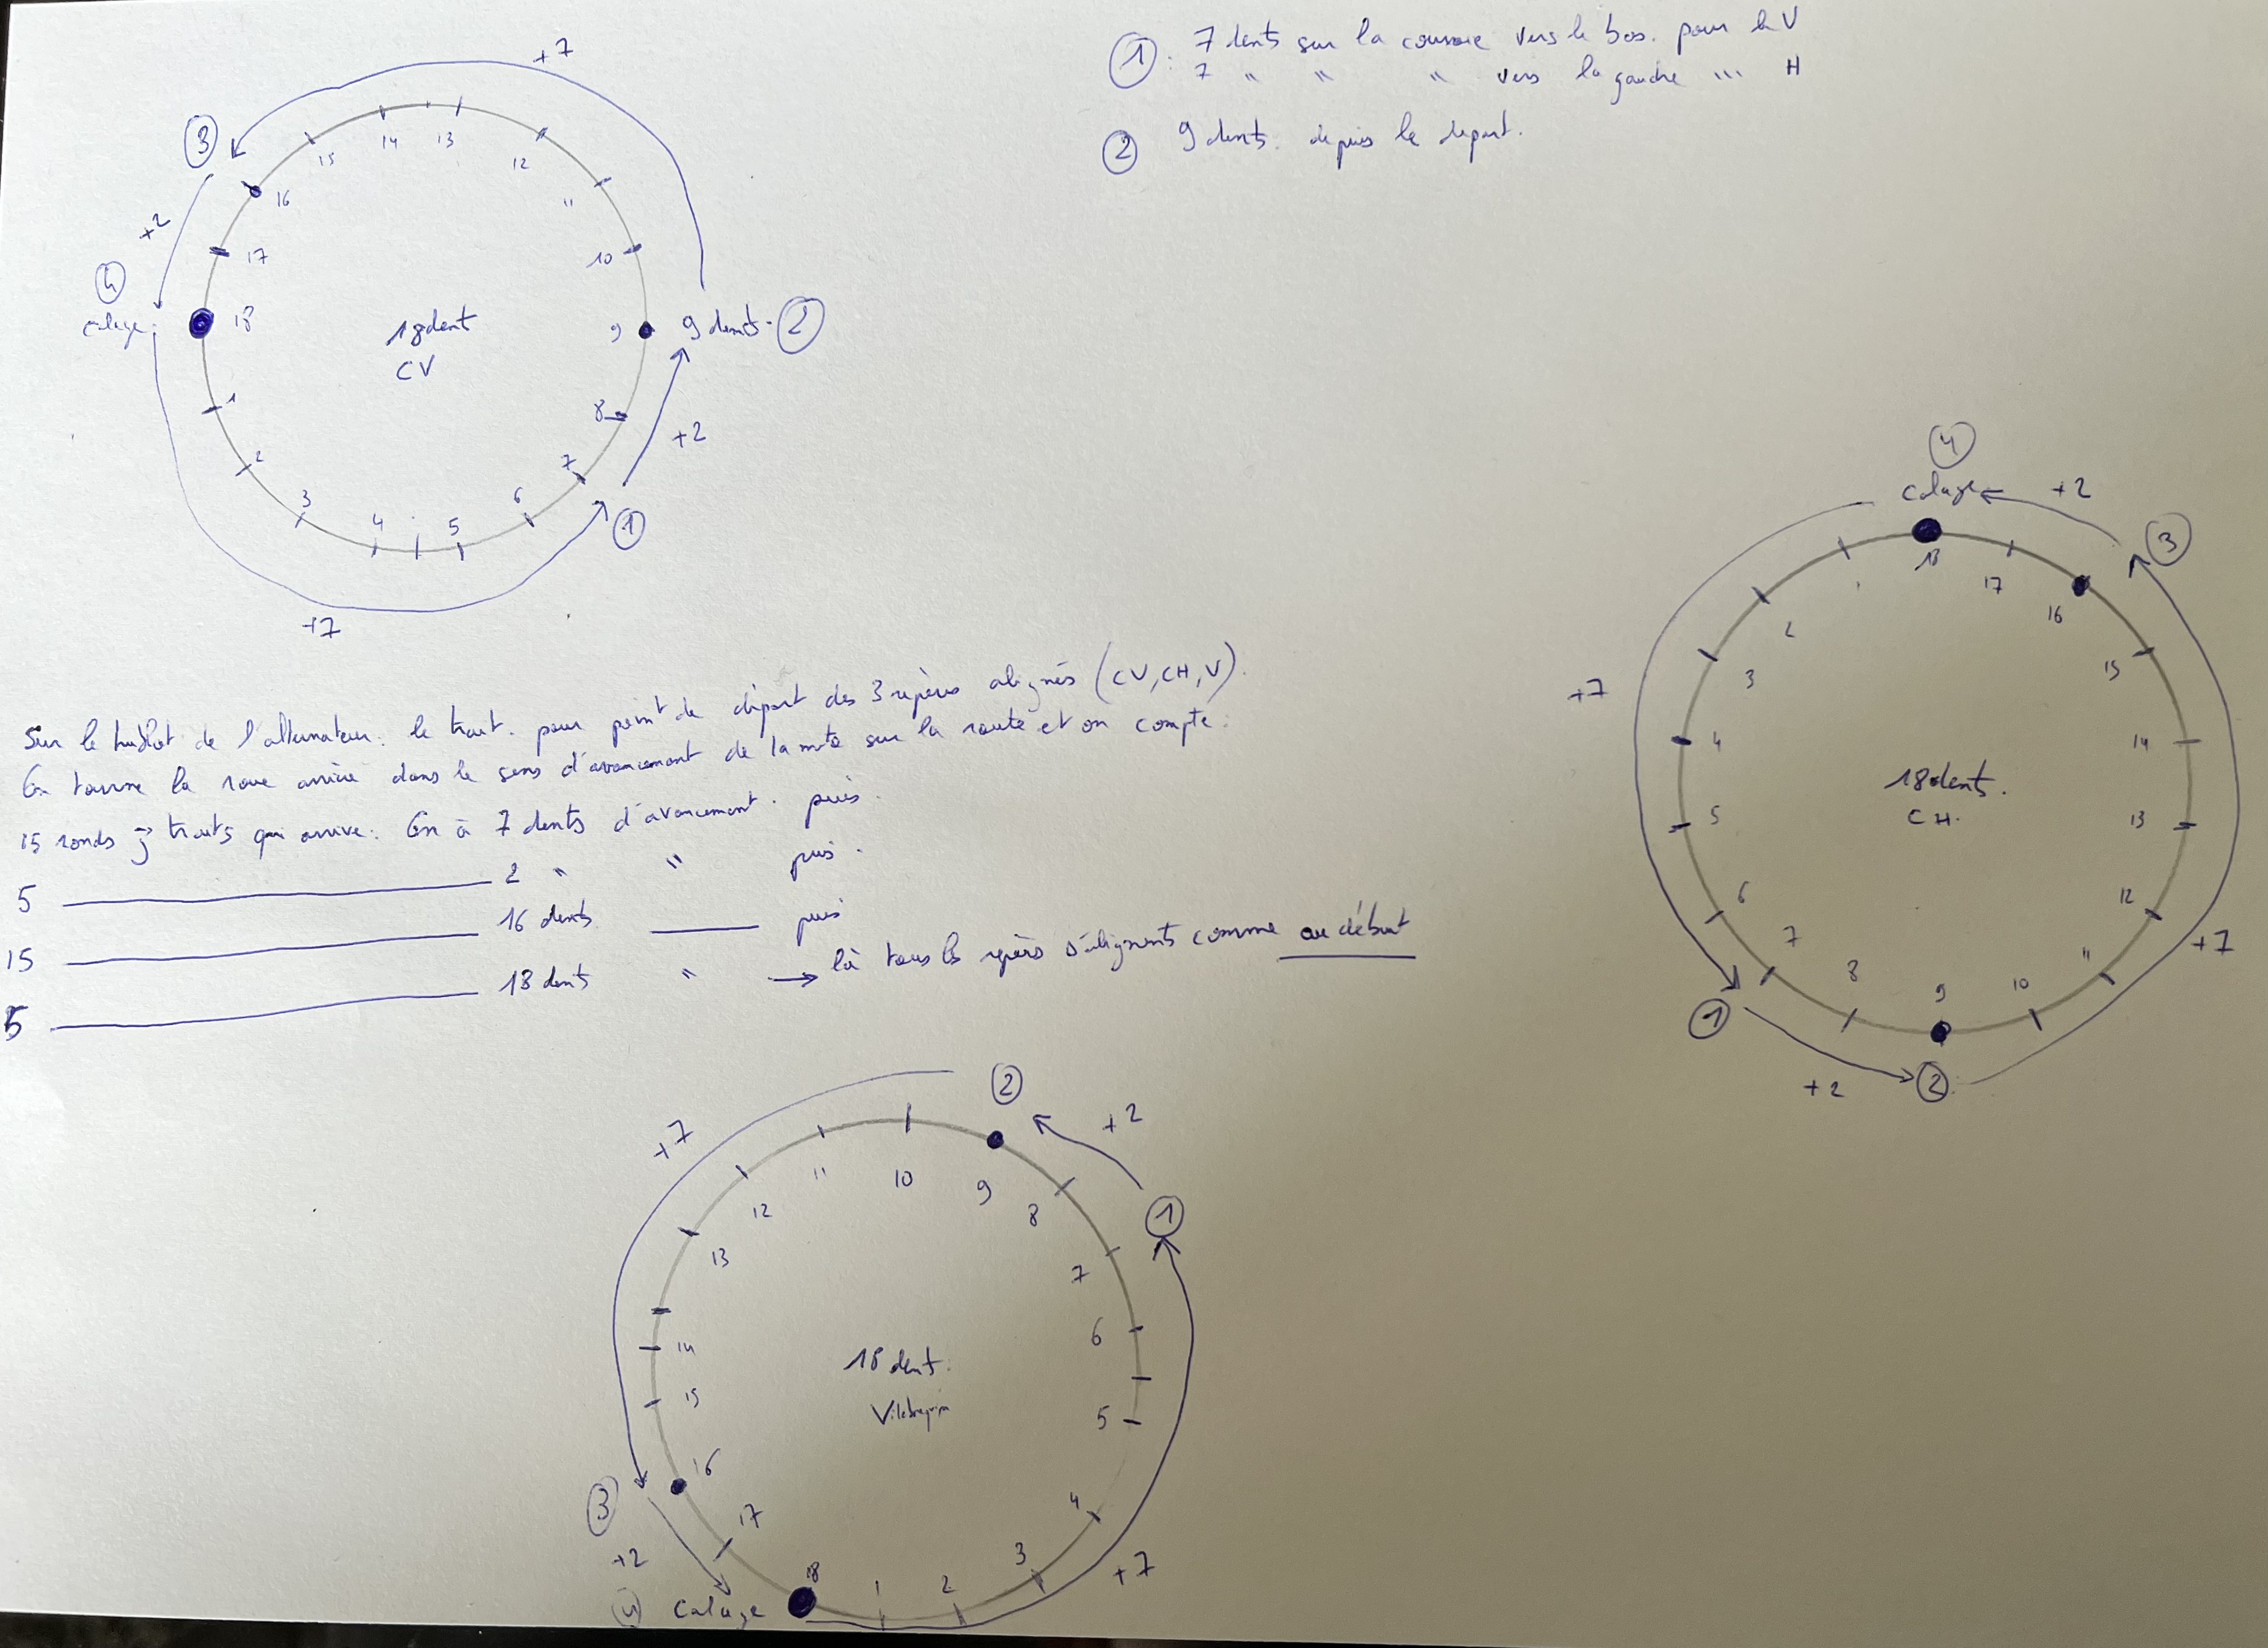 ① : 7 dents sur la courroie vers le bas. pour le V
7 " " " vers la gauche " " " H
② 9 dents. depuis le depart.
+7
③
15 14 13 12
16 11
+2
17 10
④
calage : 18 18dent CV 9 9 dents. ②
1 8
+2
2 7
3 4 5 6
①
+7
④
calage +2
③
1 18 17
2 16
3 15
+7
4 14
18dents.
CH.
5 13
6 12
7 8 9 10 11
+7
①
+2 ②
Sur le hublot de l'alternateur : le trait. pour point de départ des 3 repères alignés (CV, CH, V).
On tourne la roue arrière dans le sens d'avancement de la moto sur la route et on compte :
15 ronds et traits qui arrive : On à 7 dents d'avancement. puis.
5 2 " " puis.
15 16 dents puis
5 18 dents " → là tous les repères s'alignents comme au début
②
+2
+7
11 10 9
12 8
①
13 7
6
14
18 dent.
Vilebrequin
15 5
16
③
17 4
+2
3
18 1 2
+7
④ Calage